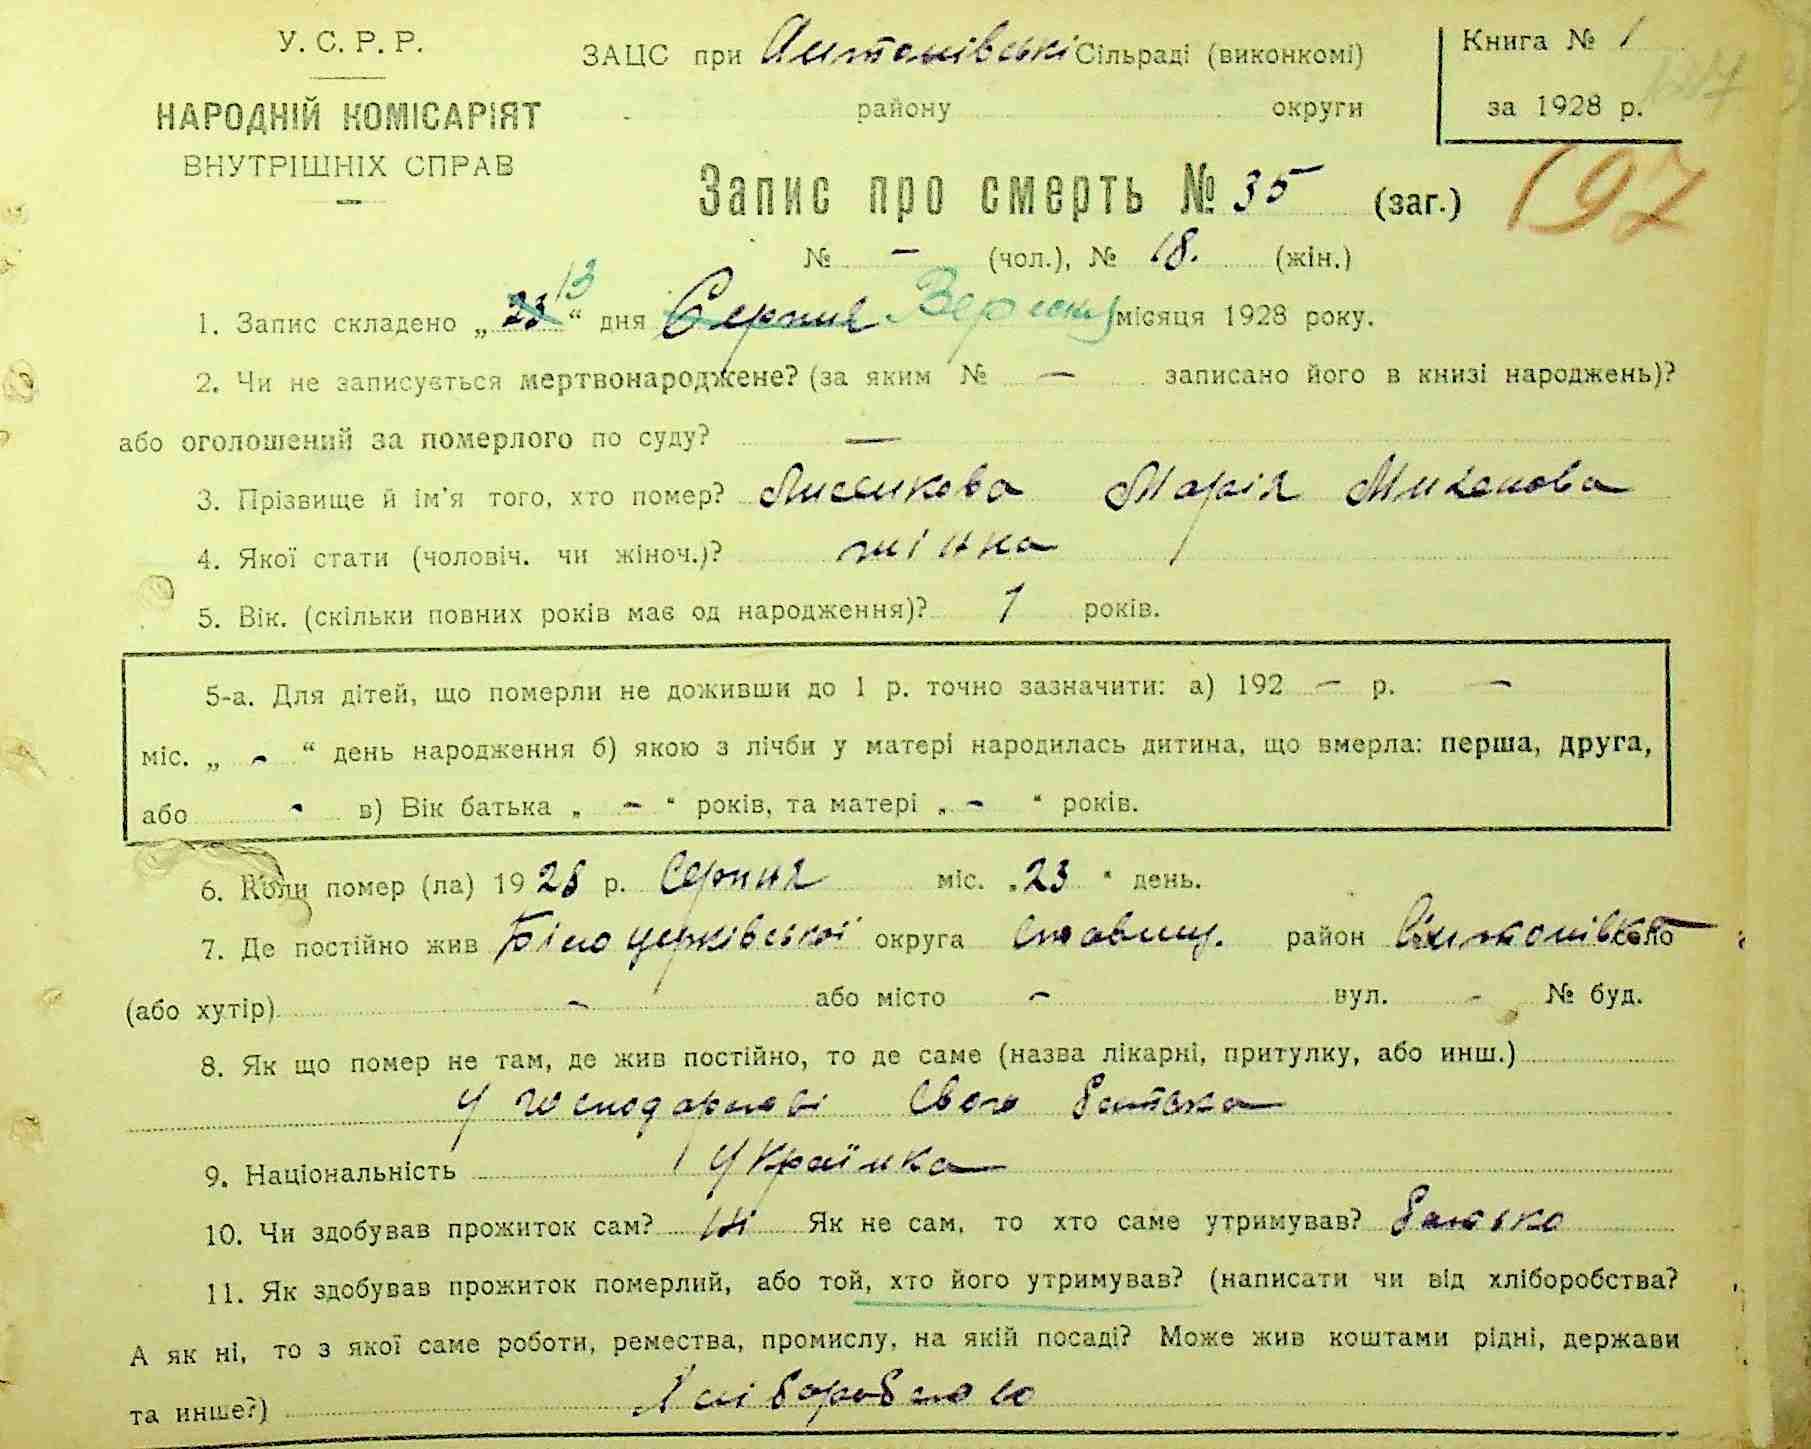 У. С. Р. Р.
НАРОДНІЙ КОМІСАРІЯТ
ВНУТРІШНІХ СПРАВ
ЗАЦС при Антонівські Сільраді (виконкомі)
району округи
Книга № 1
за 1928 р.
197
Запис про смерть № 35 (заг.)
№ — (чол.), № 18. (жін.)
1. Запис складено „ 23 13 “ дня Серпня Вересня місяця 1928 року.
2. Чи не записується мертвонароджене? (за яким № — записано його в книзі народжень)?
або оголошений за померлого по суду? —
3. Прізвище й ім'я того, хто помер? Марія
4. Якої статі (чоловіч. чи жіноч.)? жінка
5. Вік. (скільки повних років має од народження)? 1 років.
5-а. Для дітей, що померли не доживши до 1 р. точно зазначити: а) 192 — р. —
міс. „ - “ день народження б) якою з лічби у матері народилась дитина, що вмерла: перша, друга,
або - в) Вік батька „ — “ років, та матері „ — “ років.
6. Коли помер (ла) 1928 р. Серпня міс. „ 23 “ день.
7. Де постійно жив Білоцерківської округа Ставищ. район Антонівка село
(або хутір) - або місто - вул. - № буд.
8. Як що помер не там, де жив постійно, то де саме (назва лікарні, притулку, або инш.)
У господарстві свого батька
9. Національність Українка
10. Чи здобував прожиток сам? Ні Як не сам, то хто саме утримував? батько
11. Як здобував прожиток померлий, або той, хто його утримував? (написати чи від хліборобства?
А як ні, то з якої саме роботи, ремества, промислу, на якій посаді? Може жив коштами рідні, держави
та инше?) Хліборобство